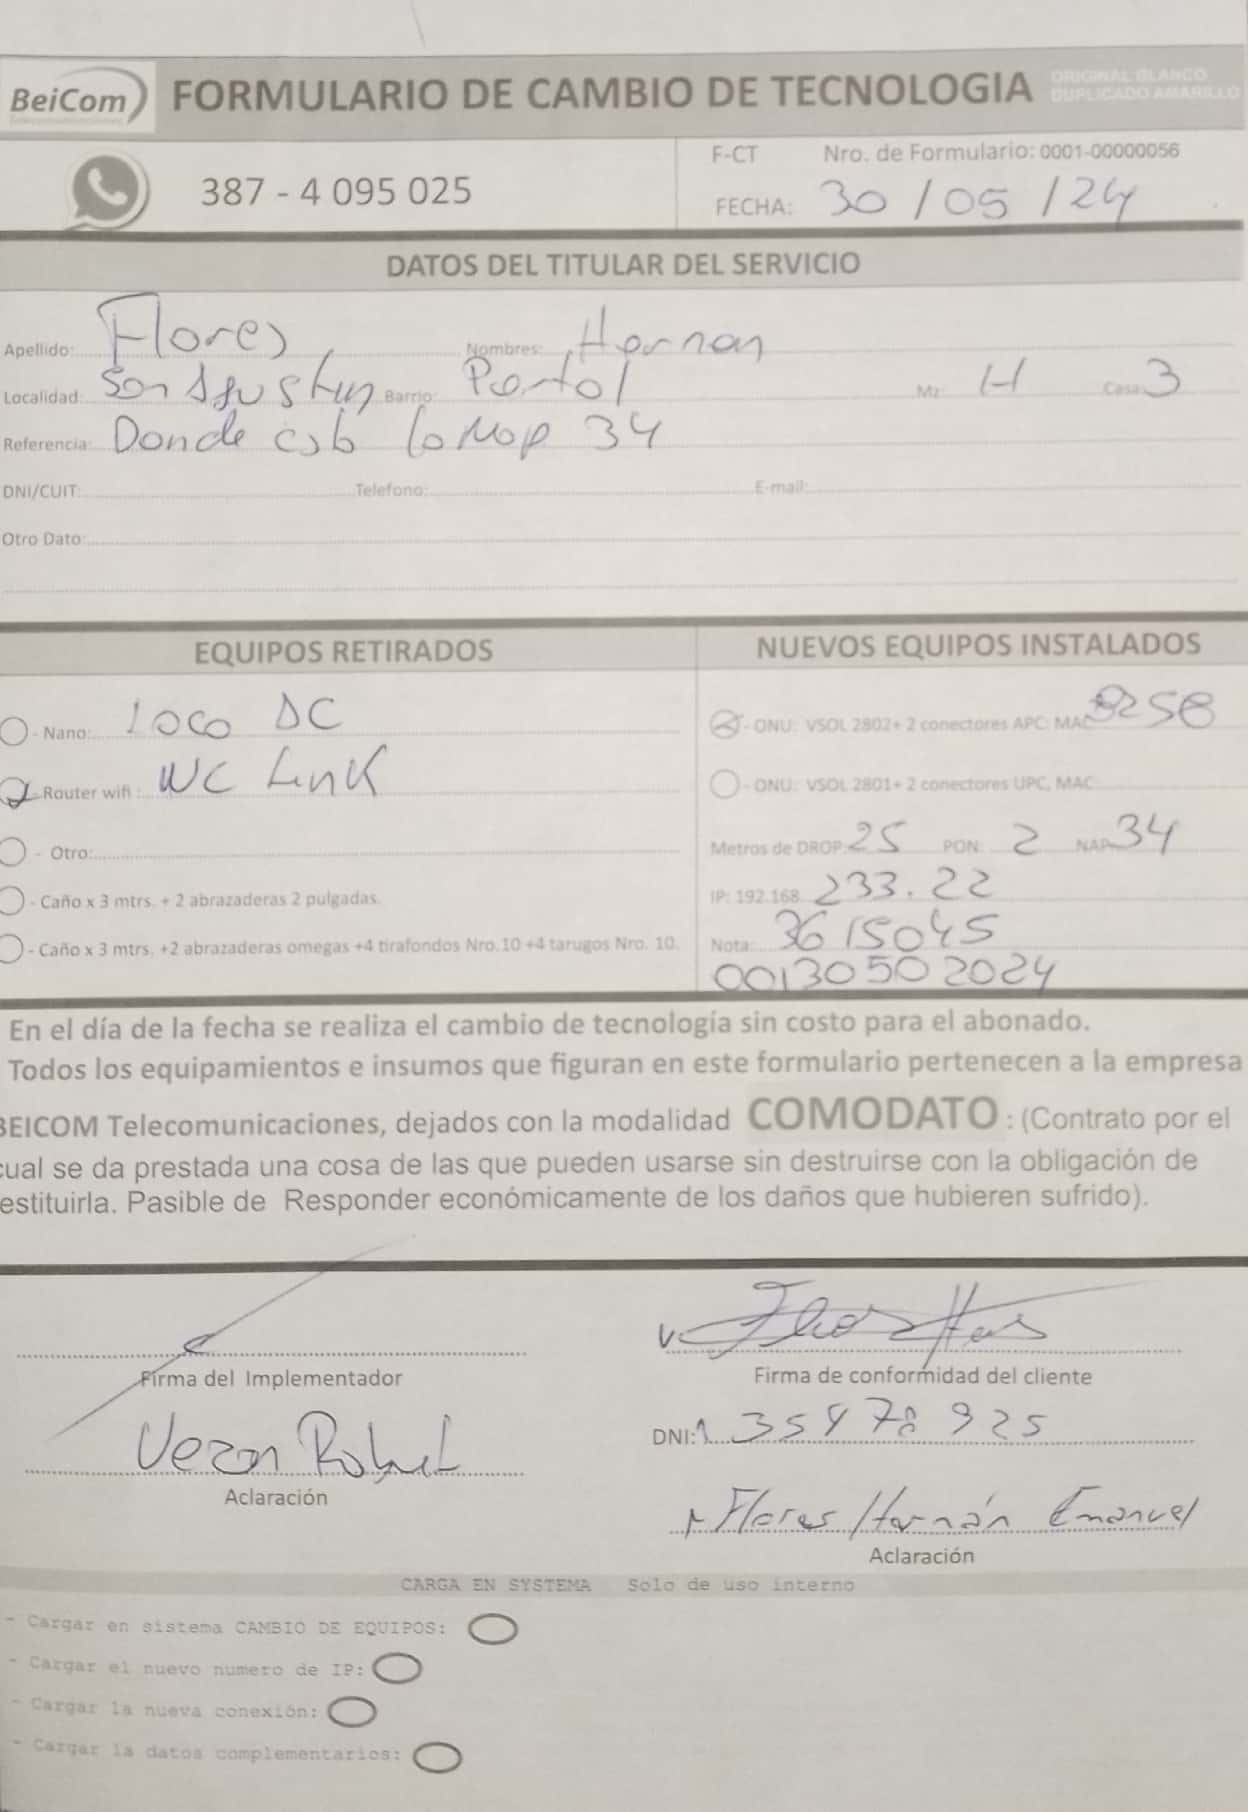 BeiCom FORMULARIO DE CAMBIO DE TECNOLOGIA ORIGINAL BLANCO
DUPLICADO AMARILLO
387 - 4 095 025
F-CT Nro. de Formulario: 0001-00000056
FECHA: 30 / 05 / 24
DATOS DEL TITULAR DEL SERVICIO
Apellido: Flores Nombres: Hernan
Localidad: San Agustin Barrio: Portal Mz: H Casa: 3
Referencia: Donde esta la Nap 34
DNI/CUIT: Telefono: E-mail:
Otro Dato:
EQUIPOS RETIRADOS
- Nano: Loco DC
- Router wifi : WC Link
- Otro:
- Caño x 3 mtrs. + 2 abrazaderas 2 pulgadas.
- Caño x 3 mtrs. +2 abrazaderas omegas +4 tirafondos Nro.10 +4 tarugos Nro. 10.
NUEVOS EQUIPOS INSTALADOS
- ONU: VSOL 2802+ 2 conectores APC: MAC 825B
- ONU: VSOL 2801+ 2 conectores UPC, MAC
Metros de DROP: 25 PON: 2 NAP: 34
IP: 192.168. 233.22
Nota: 3615045
00130502024
En el día de la fecha se realiza el cambio de tecnología sin costo para el abonado.
Todos los equipamientos e insumos que figuran en este formulario pertenecen a la empresa
BEICOM Telecomunicaciones, dejados con la modalidad COMODATO : (Contrato por el
cual se da prestada una cosa de las que pueden usarse sin destruirse con la obligación de
estituirla. Pasible de Responder económicamente de los daños que hubieren sufrido).
Firma del Implementador
Aclaración
Firma de conformidad del cliente
DNI: 35478925
Flores Hernán Emanuel
Aclaración
CARGA EN SYSTEMA Solo de uso interno
- Cargar en sistema CAMBIO DE EQUIPOS:
- Cargar el nuevo numero de IP:
- Cargar la nueva conexión:
- Cargar la datos complementarios: